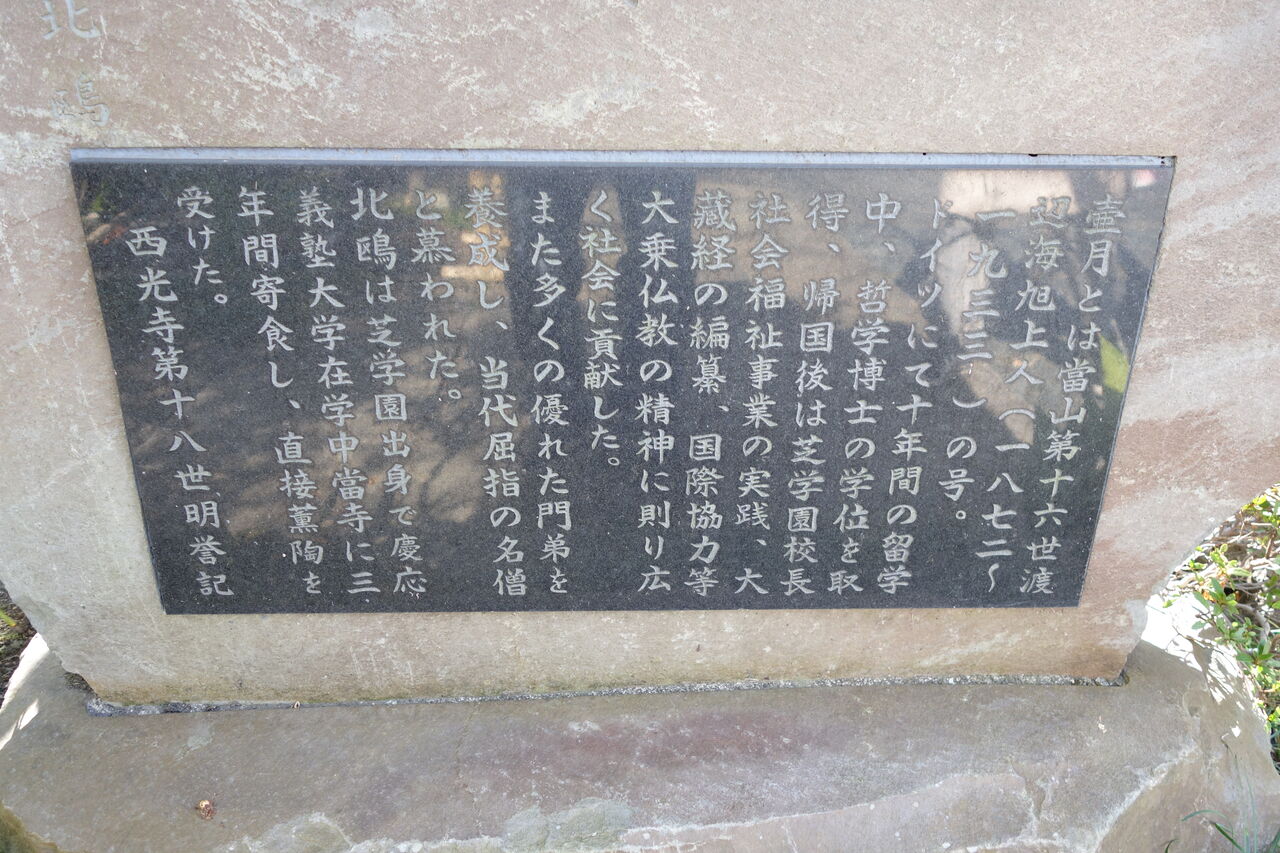 北鴎
壷月とは當山第十六世渡
辺海旭上人(一八七二〜
一九三三)の号。
ドイツにて十年間の留学
中、哲学博士の学位を取
得、帰国後は芝学園校長
社会福祉事業の実践、大
藏経の編纂、国際協力等
大乗仏教の精神に則り広
く社会に貢献した。
また多くの優れた門弟を
養成し、当代屈指の名僧
と慕われた。
北鴎は芝学園出身で慶応
義塾大学在学中當寺に三
年間寄食し、直接薫陶を
受けた。
西光寺第十八世明誉記